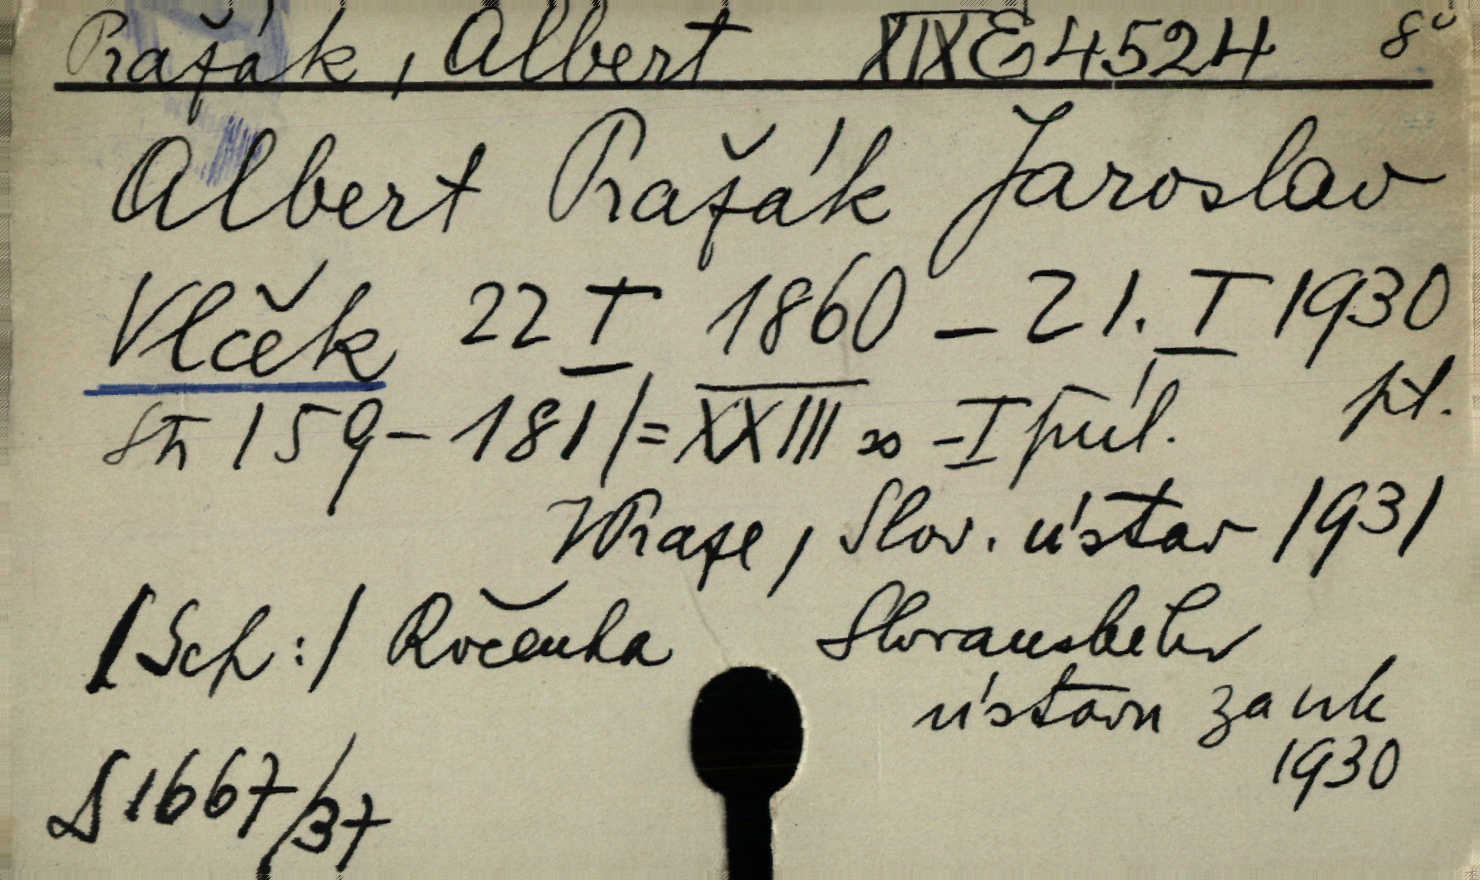 Pražák, Albert XIX E 4524 8°
Albert Pražák Jaroslav
Vlček 22 I 1860 – 21. I 1930
Str 159 – 181 /= XXIII s – I příl. pt.
V Praze, Slov. ústav 1931
/Sch:/ Ročenka Slovanského
ústavu za rok
1930
S 1667/37